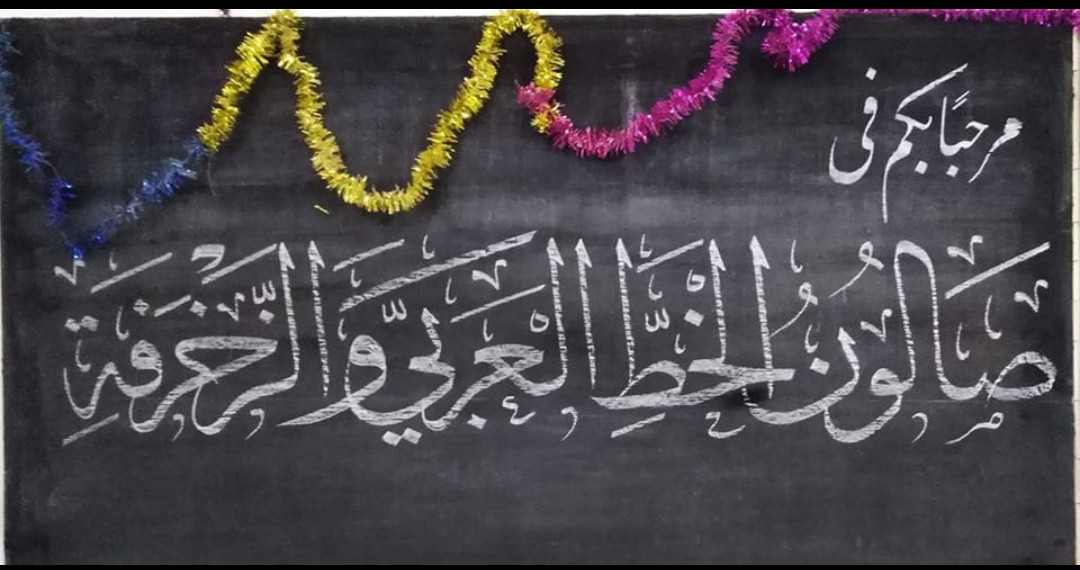 مرحبًا بكم في
صَالُونُ الخَطِّ العَرَبِيِّ وَالزَّخْرَفَةِ